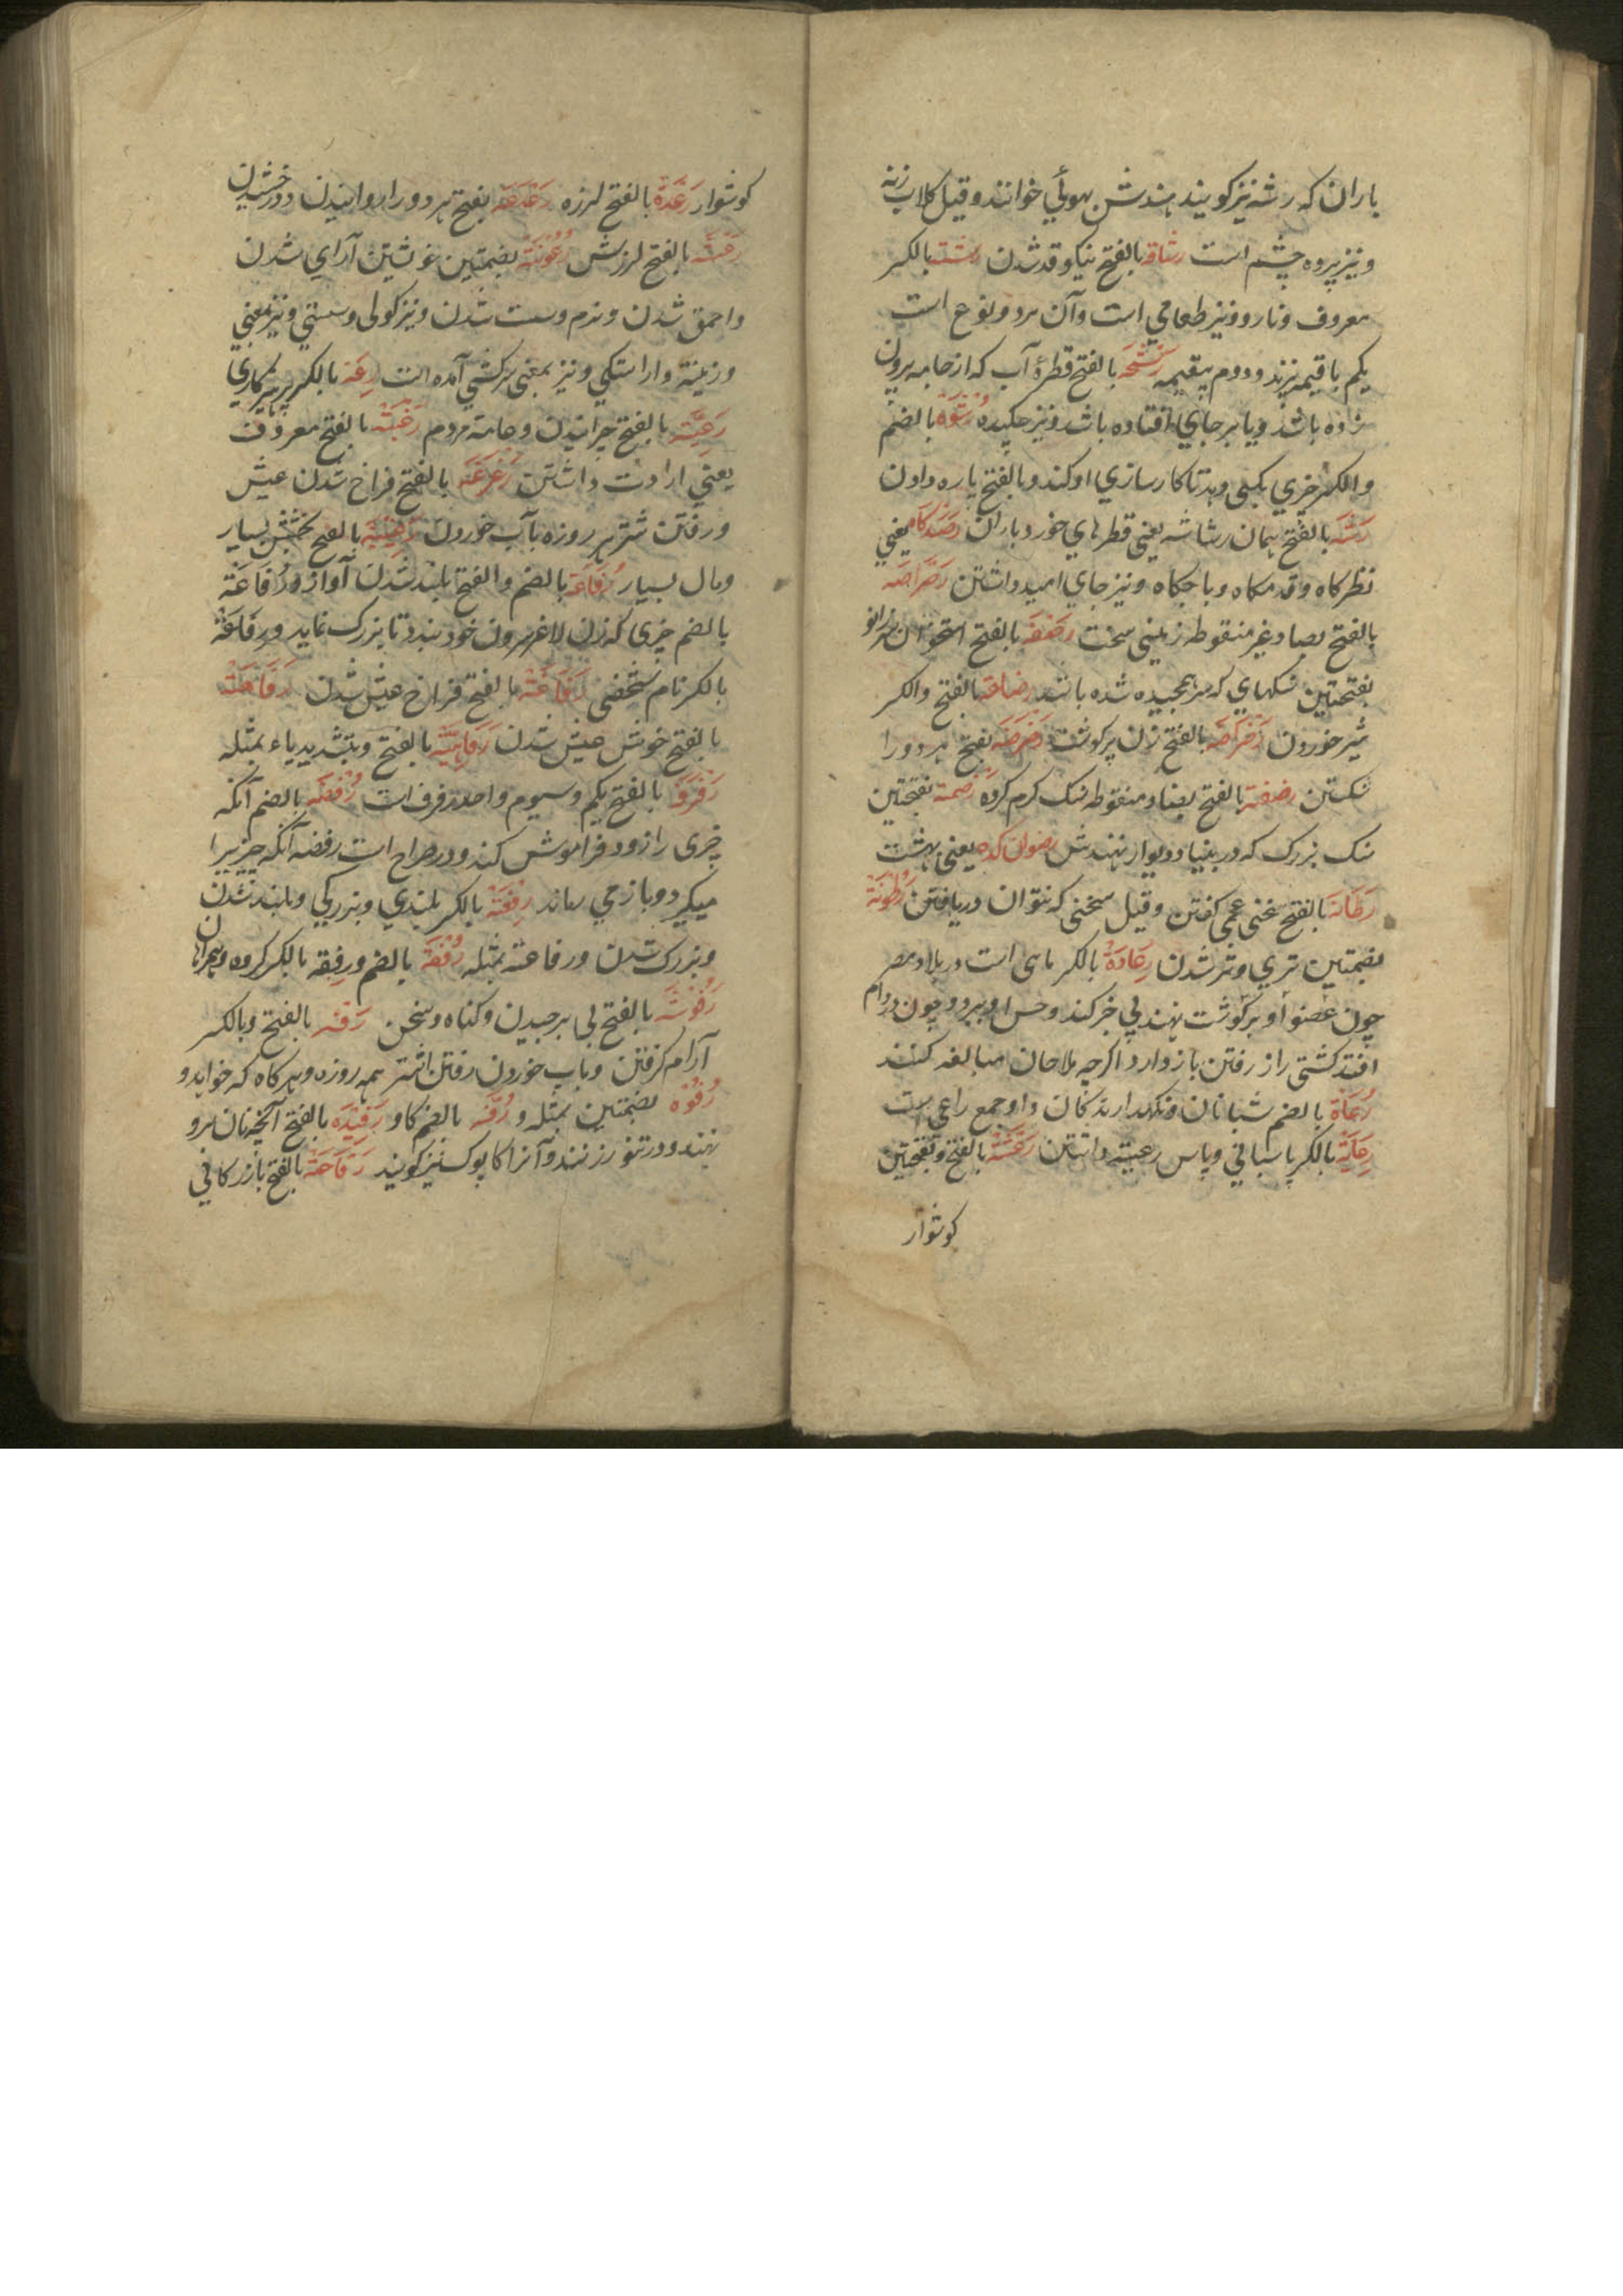 باران که رشه نیز کویند هندش بهوئي خوانند وقیل کلاب زنه
ونیز پرده چشم است رشاقه بالفتح نیکو قد شدن رشته بالکسر
معروف ونارو ونیز طعامي است وآن بردو نوع است
یکم باقیمه پزند ودوم بیقیمه رشحه بالفتح قطرۀ آب که از جامه بیرون
زاده باشد ویا بر جاي افتاده باشد ونیز چکیده رشوه بالضم
والکسر چیزي بکسی دهد تا کارسازي او کند وبالفتح پاره دادن
رشه بالفتح همان رشاشه یعنی قطرهاي خورد باران رصدکاه یعني
نظرکاه وقدمکاه وباجکاه ونیز جاي امید داشتن رصراصه
بالفتح بصاد غیر منقوطه زمینی سخت رضفه بالفتح استخوان سر زانو
بفتحتین سنکهاي که سر هم چیده شده باشد رضاعه بالفتح والکسر
شیر خوردن رضراضه بالفتح زن پر کوشت رضرضه بفتح هر دو را
شکستن رضفه بالفتح بضاد منقوطه سنک کرم کرده رضمه بفتحتین
سنک بزرک که در بنیاد دیوار نهندش رضوان کده یعنی بهشت
رطانه بالفتح سخنی عجمی کفتن وقیل سخنی که نتوان دریافتن رطوبة
بضمتین تري وتر شدن رعادة بالکسر ماهی است در بلاد مصر
چون عضو او بر کوشت نهند بي خبر کند وحس او ببرد وچون در دام
افتد کشتی را از رفتن باز دارد اکرچه ملاحان مبالغه کنند
رعاة بالضم شبانان ونکهدارندکان واو جمع راعي است
رعایة بالکسر پاسباني وپاس رعیته داشتن رعثة بالفتح وبفتحتین
کوشوار
کوشوار رعدة بالفتح لرزه رعرعه بفتح هر دو را روانیدن ودرخشیدن
رعشه بالفتح لرزش رعونة بضمتین خوشتین آراي شدن
واحمق شدن ونرم وسست شدن ونیز کولی وسستي ونیز بمعني
وزینة واراستکي ونیز بمعنی سرکشي آمده است رعة بالکسر پرهیزکاري
رعیة بالفتح چرانیدن وعامه مردم رغبة بالفتح معروف
یعني ارادت داشتن رغرغه بالفتح فراخ شدن عیش
ورفتن شتر هر روزه بآب خوردن بالفتح بخشش بسیار
ومال بسیار رفاعة بالضم والفتح بلند شدن آواز ورفاعة
بالضم چیزي که زن لاغر سرون خود بندد تا بزرک نماید ورفاعة
بالکسر نام شخصی رفاغة بالفتح فراخ عیش شدن رفاهة
بالفتح خوش عیش شدن رفاهیة بالفتح وبتشدید یاء بمثله
رفرفة بالفتح یکم وسیوم واحد رفرف است رفضه بالضم آنکه
چیزی را زود فراموش کند ودر صراح است رفضه آنکه چیزیرا
میکیرد وباز مي ماند رفعة بالکسر بلندي وبزرکي وبلند شدن
وبزرک شدن ورفاعة بمثله رفقة بالضم ورفقه بالکسر کروه وهمراهان
بالفتح بی برچیدن وکناه وسخن رفه بالفتح وبالکسر
آرام کرفتن وبآب خوردن رفتن اشتر همه روزه وهرکاه که خواهد و
رفوه بضمتین بمثله و رفه بالضم کاه و رفیده بالفتح آنچه نان برو
نهند ودر تنور زنند وآنرا کاپوک نیز کویند رقاحة بالفتح بازرکاني